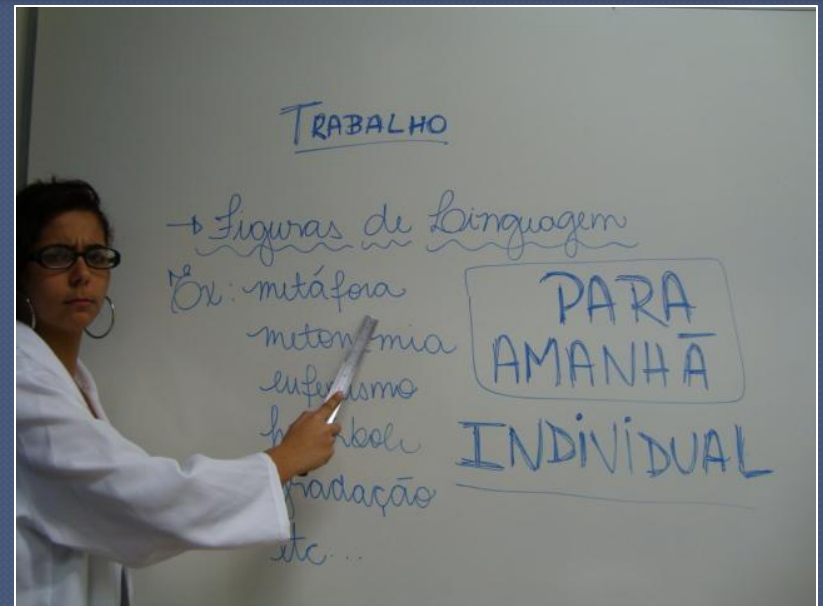 TRABALHO
→ Figuras de Linguagem
Ex: metáfora
metonímia
eufemismo
hipérbole
gradação
etc...
PARA
AMANHÃ
INDIVIDUAL